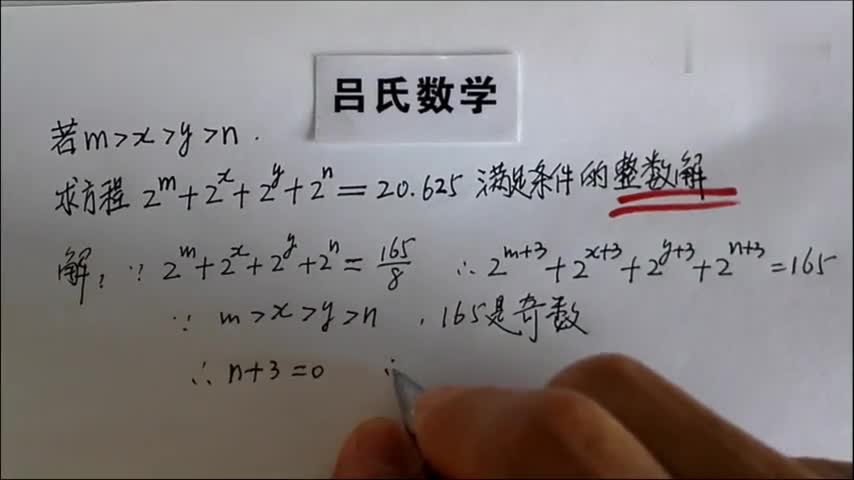 吕氏数学
若m>x>y>n.
求方程 2^m+2^x+2^y+2^n=20.625 满足条件的整数解
解:∵ 2^m+2^x+2^y+2^n=165/8 ∴ 2^{m+3}+2^{x+3}+2^{y+3}+2^{n+3}=165
∵ m>x>y>n , 165是奇数
∴ n+3=0